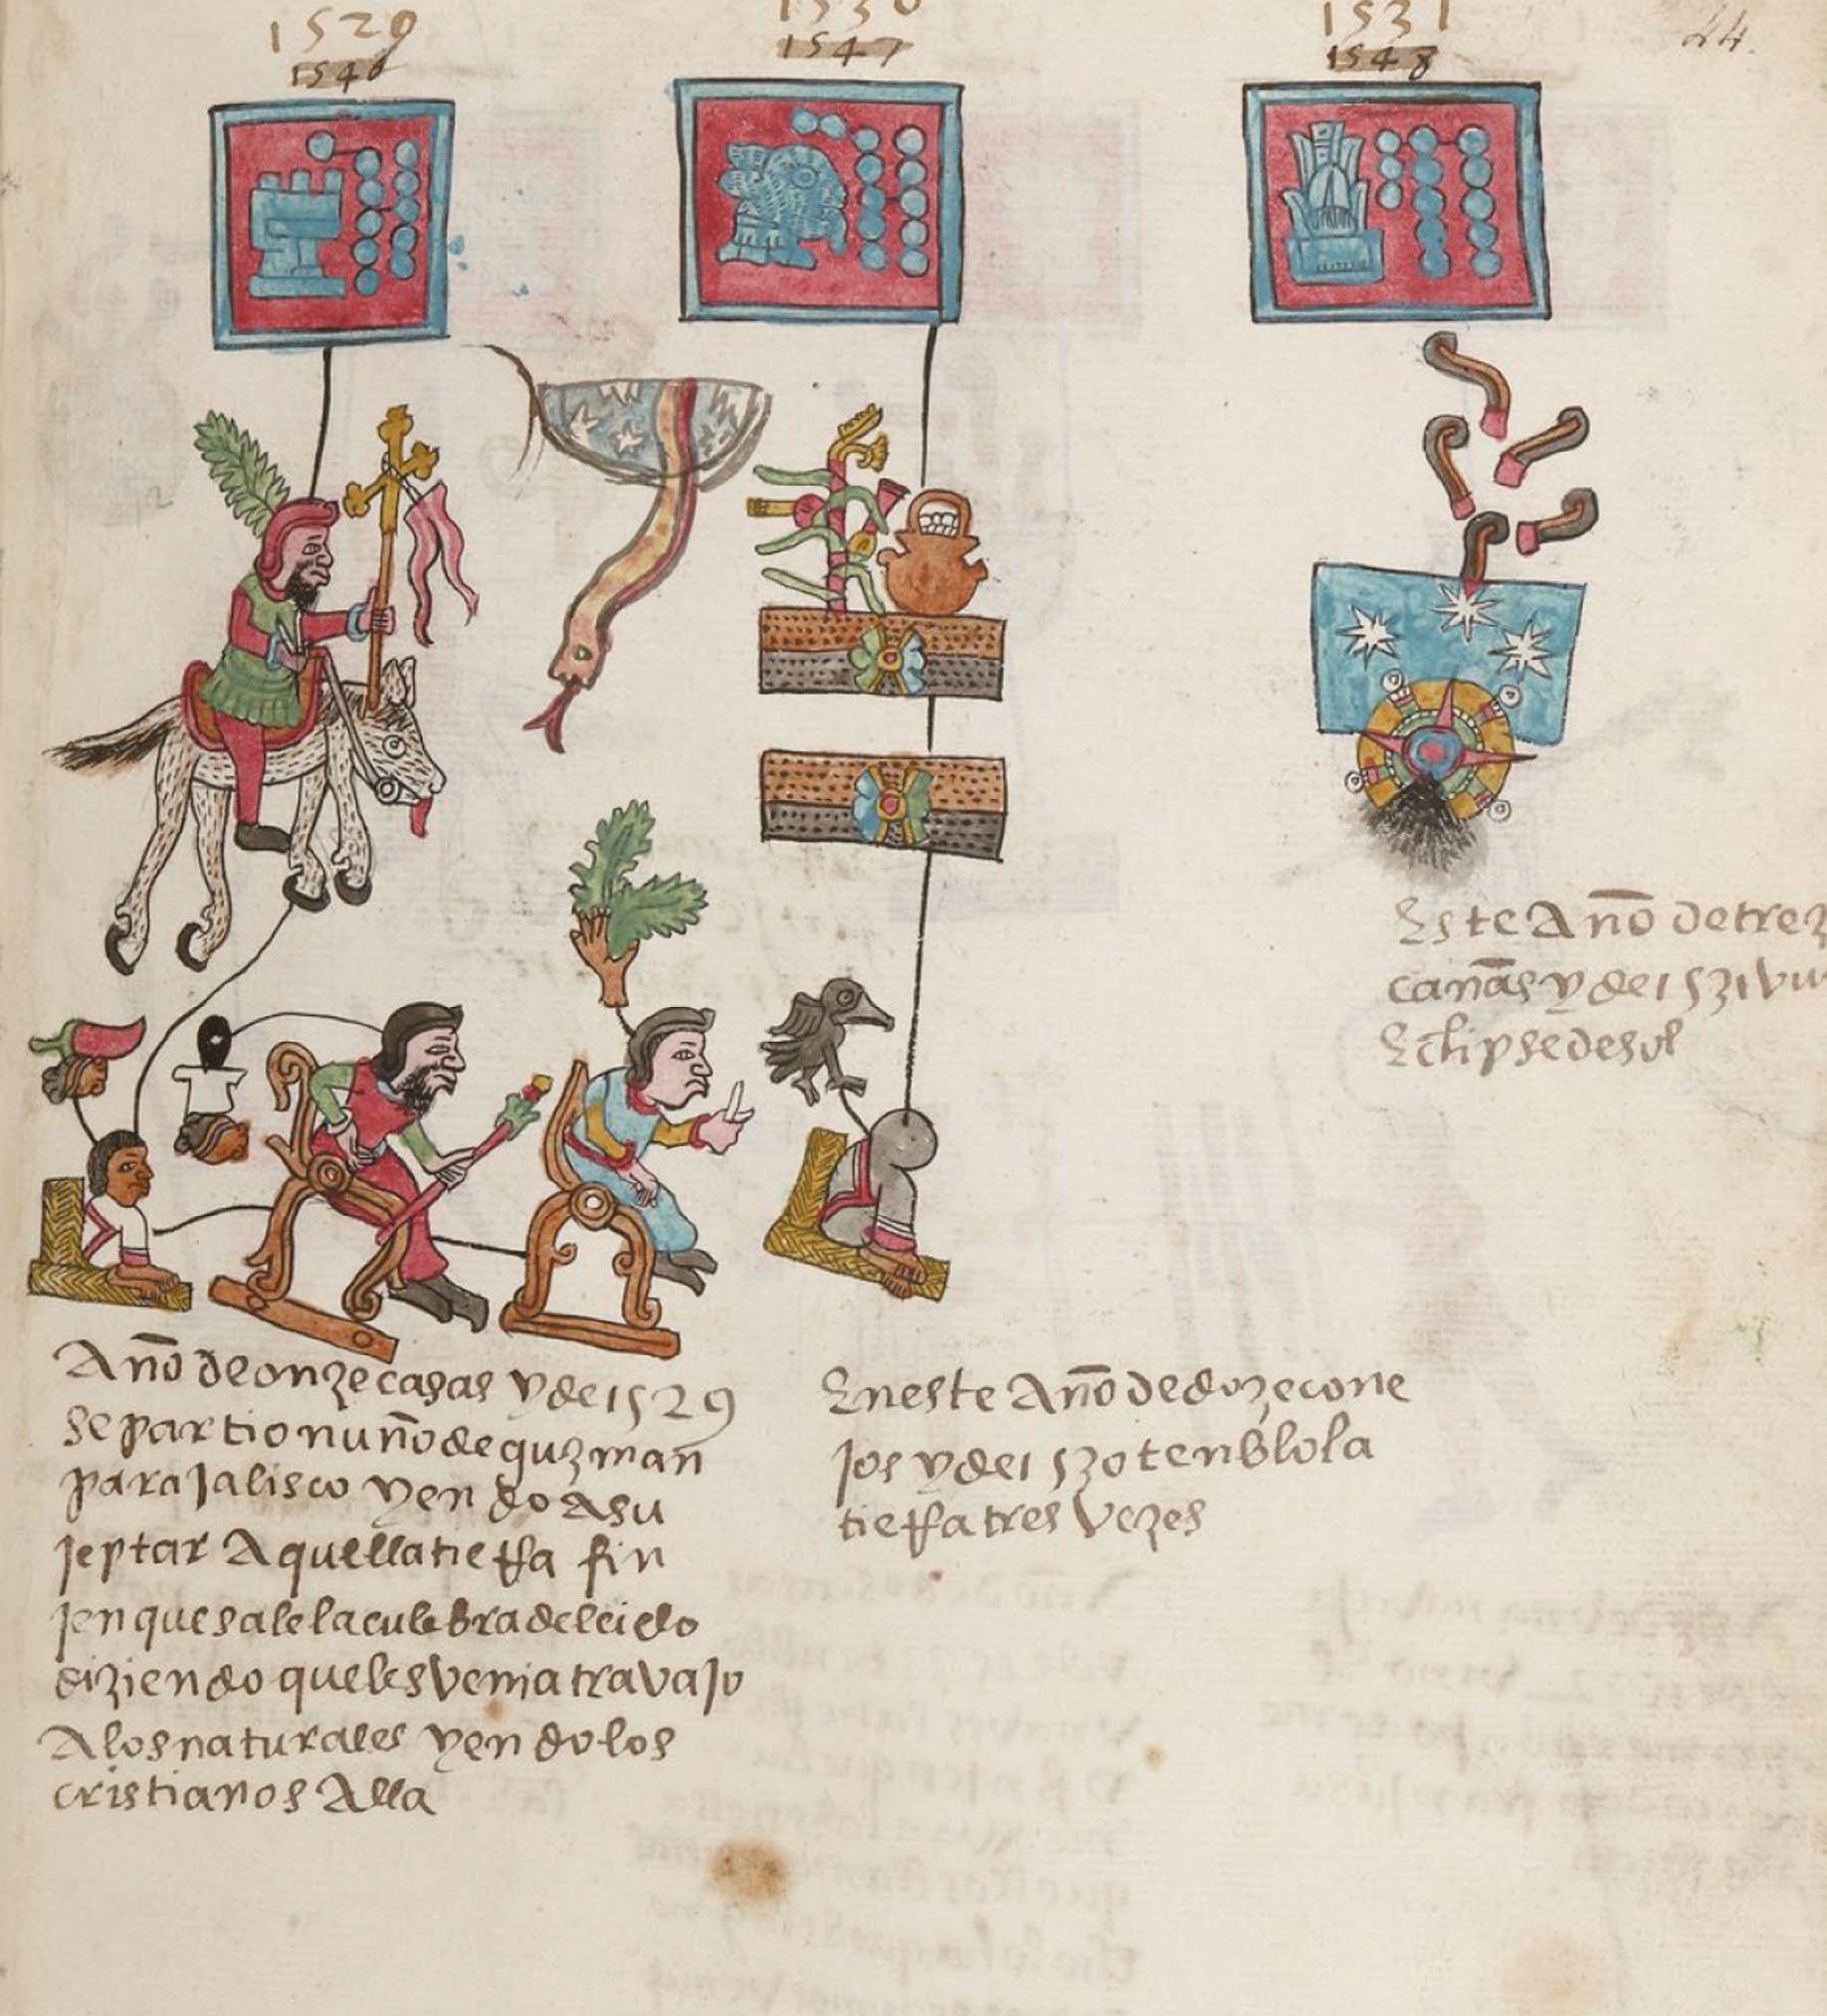 1529
1546
1530
1547
1531
1548
44.
Año de onze casas y de 1529
se partio nuño de guzman
para Jalisco yendo a su
jeptar aquella tierra fin
jen que sale la culebra del cielo
diziendo que les venia travajo
A los naturales yendo los
cristianos alla
En este Año de doze cone
jos y de 1530 tenblo la
tierra tres vezes
Este Año de trez
cañas y de 1531 vu
Eclipse de sol